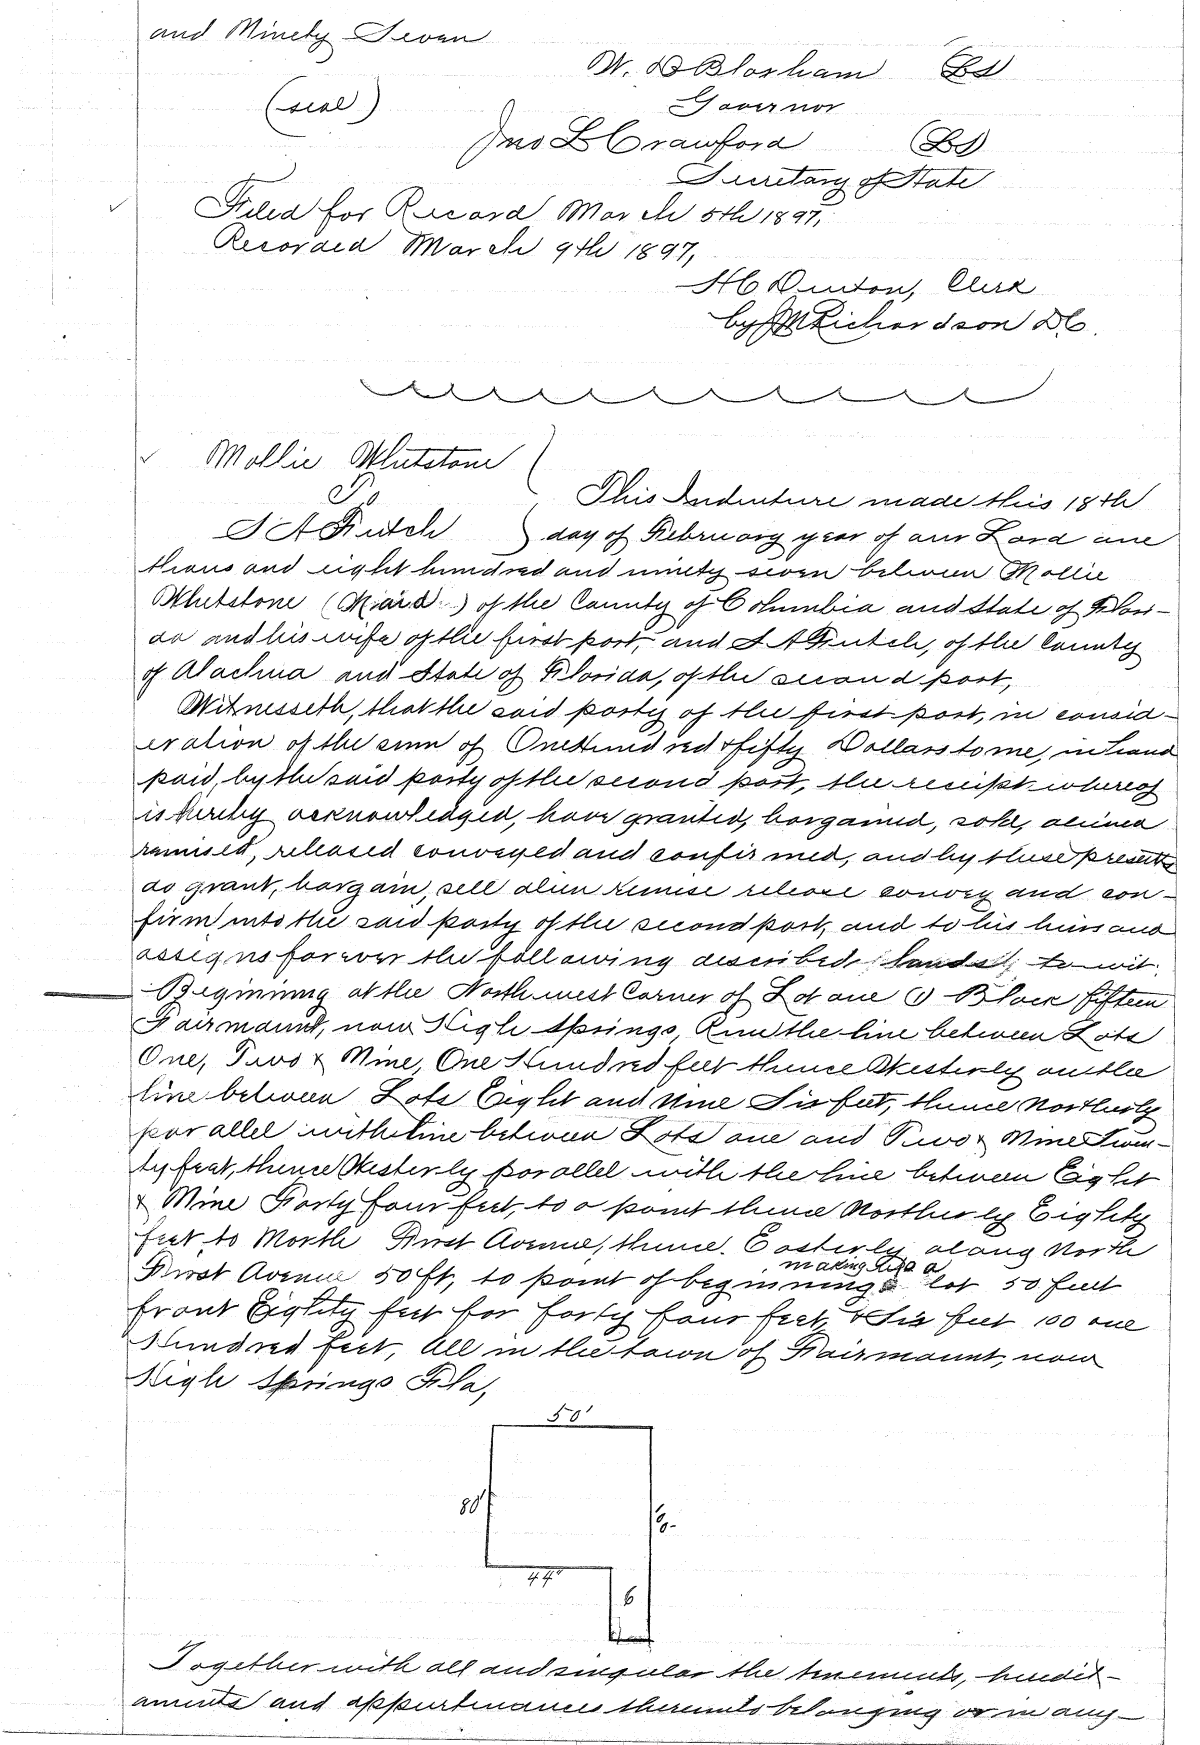 and Ninety Seven
W. D Bloxham (LS)
(seal) Governor
Jno L Crawford (LS)
Secretary of State
Filed for Record March 5th 1897,
Recorded March 9th 1897,
H C Denton, Clerk
by Richardson DC.
Mollie Whetstone
To This Indenture made this 18th
S A Futch day of February year of our Lord one
thous and eight hundred and ninety seven between Mollie
Whetstone ( ) of the County of Columbia and State of Flori-
da and his wife of the first part, and S A Futch, of the County
of Alachua and State of Florida, of the second part,
Witnesseth, that the said party of the first part, in consid-
eration of the sum of One Hundred & fifty Dollars to me, in hand
paid, by the said party of the second part, the receipt whereof
is hereby acknowledged, have granted, bargained, sold, aliened
remised, released conveyed and confirmed, and by these presents
do grant, bargain, sell alien remise release convey and con-
firm unto the said party of the second part, and to his heirs and
assigns forever the following described lands, to-wit:
Beginning at the North west Corner of Lot one (1) Block fifteen
Fairmount, now High Springs, Run the line between Lots
One, Two & Nine, One Hundred feet thence Westerly on the
line between Lots Eight and Nine Six feet, thence Northerly
parallel with line between Lots one and Two & Nine Twen-
ty feet, thence Westerly parallel with the line between Eight
& Nine Forty four feet, to a point thence Northerly Eighty
feet to North First Avenue, thence. Easterly along North
First Avenue 50 ft, to point of beginning making a lot 50 feet
front Eighty feet for forty four feet, & Six feet 100 one
Hundred feet, All in the town of Fairmount, now
High Springs Fla,
50'
80'
44'
6
Together with all and singular the tenements, heredit-
aments and appurtenances thereunto belonging or in any-